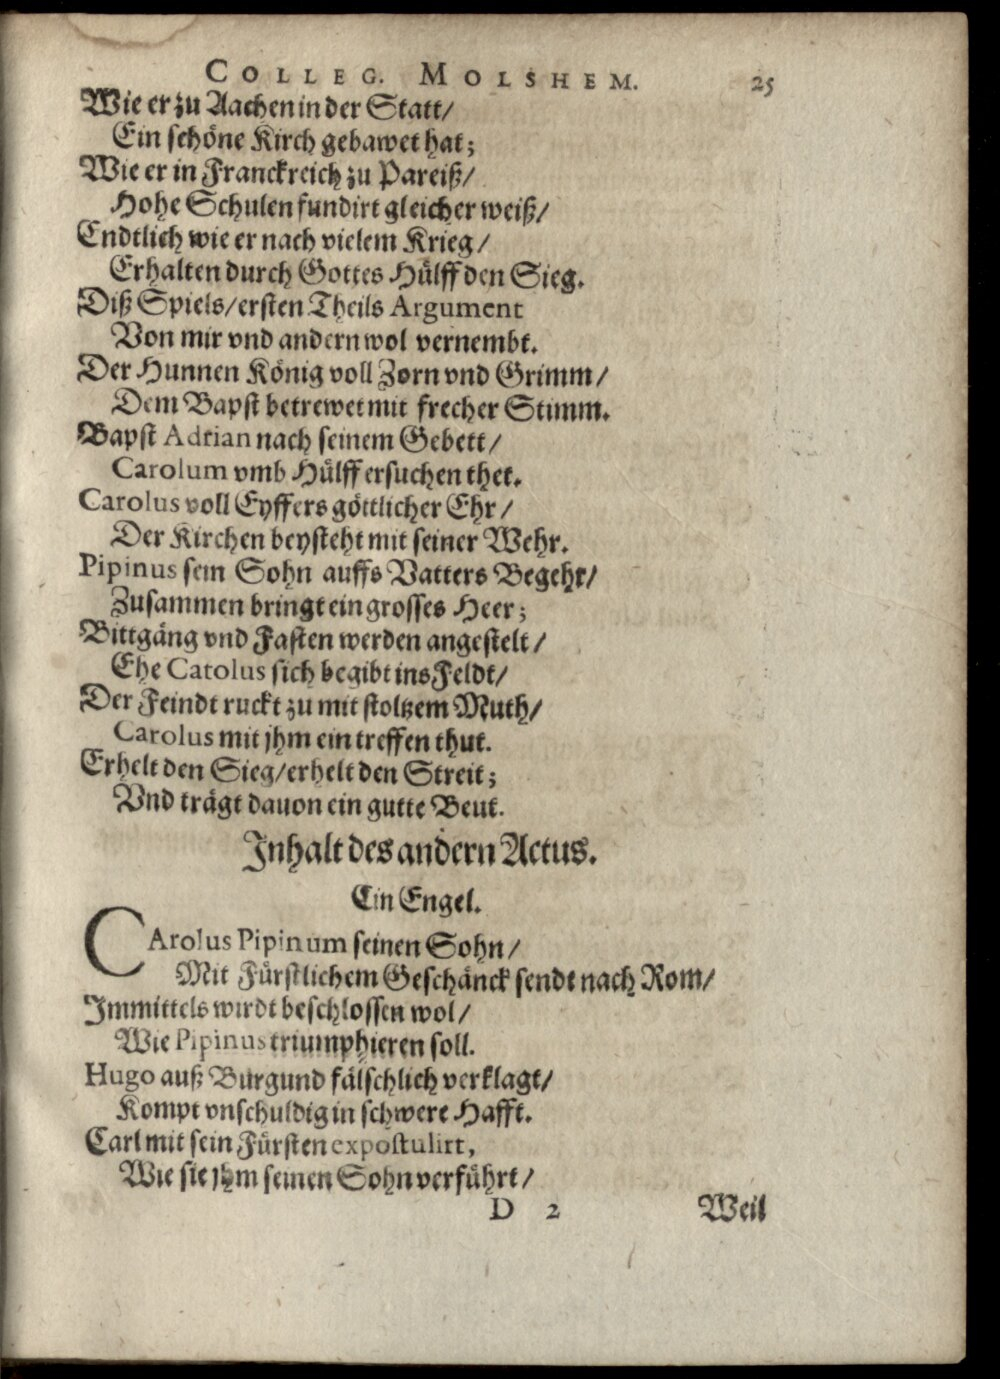 COLLEG. MOLSHEM. 25
Wie er zu Aachen in der Statt/
Ein schöne Kirch gebawet hat;
Wie er in Franckreich zu Pareiß/
Hohe Schulen fundirt gleicher weiß/
Endtlich wie er nach vielem Krieg/
Erhalten durch Gottes Hülff den Sieg.
Diß Spiels/ersten Theils Argument
Von mir vnd andern wol vernembt.
Der Hunnen König voll Zorn vnd Grimm/
Dem Bapst betrewet mit frecher Stimm.
Bapst Adrian nach seinem Gebett/
Carolum vmb Hülff ersuchen thet.
Carolus voll Eyffers göttlicher Ehr/
Der Kirchen beysteht mit seiner Wehr.
Pipinus sein Sohn auffs Vatters Begehr/
Zusammen bringt ein grosses Heer;
Bittgäng vnd Fasten werden angestelt/
Ehe Catolus sich begibt ins Feldt/
Der Feindt ruckt zu mit stoltzem Muth/
Carolus mit jhm ein treffen thut.
Erhelt den Sieg/erhelt den Streit;
Vnd trägt dauon ein gutte Beut.
Inhalt des andern Actus.
Ein Engel.
CArolus Pipinum seinen Sohn/
Mit Fürstlichem Geschänck sendt nach Rom/
Immittels wirdt beschlossen wol/
Wie Pipinus triumphieren soll.
Hugo auß Burgund fälschlich verklagt/
Kompt vnschuldig in schwere Hafft.
Carl mit sein Fürsten expostulirt,
Wie sie jhm seinen Sohn verführt/
D 2 Weil